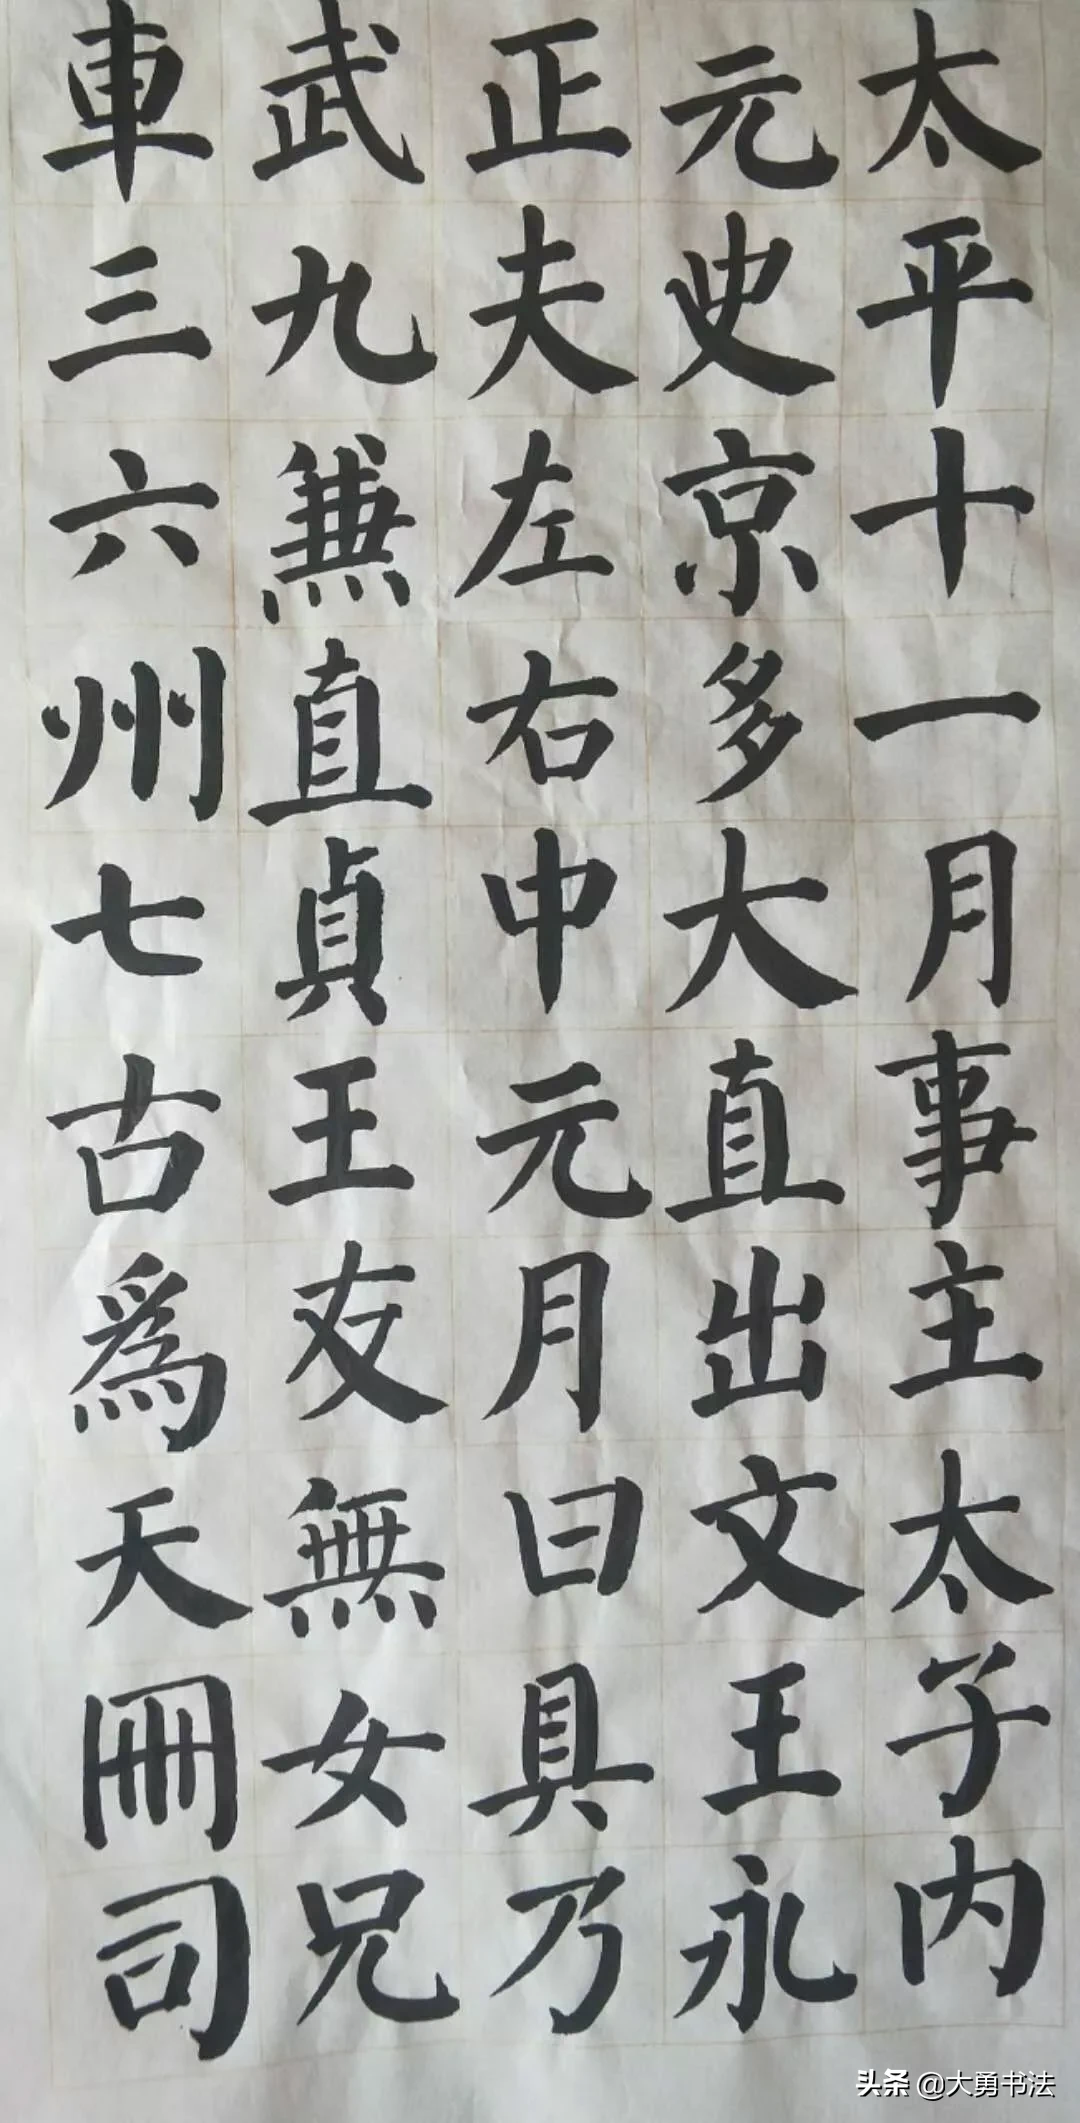 太平十一月事主太子内
元史京多大直出文王永
正夫左右中元月曰具乃
武九兼直貞王友無女兄
車三六州七古為天冊司
头条 @大勇书法